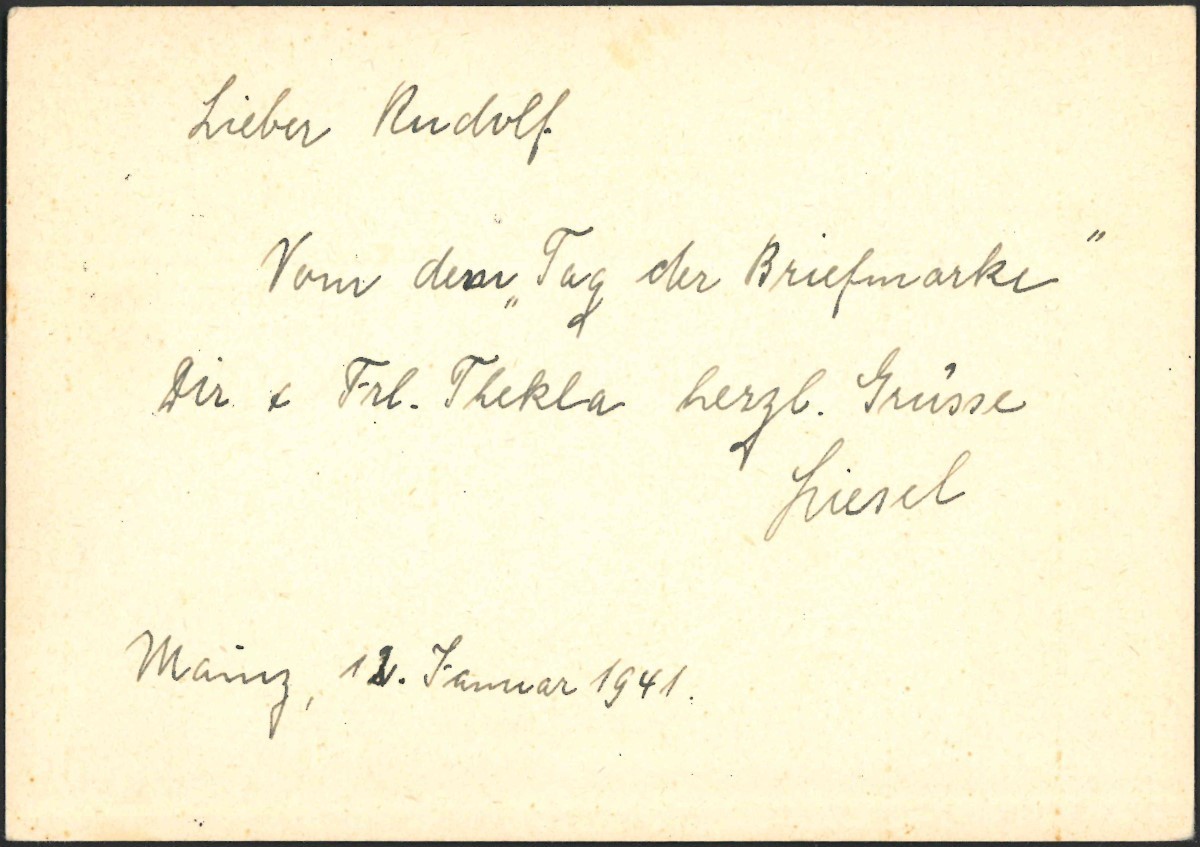 Lieber Rudolf.
Vom dem „Tag der Briefmarke"
Dir & Frl. Thekla herzl. Grüsse
Liesel
Mainz, 12. Januar 1941.